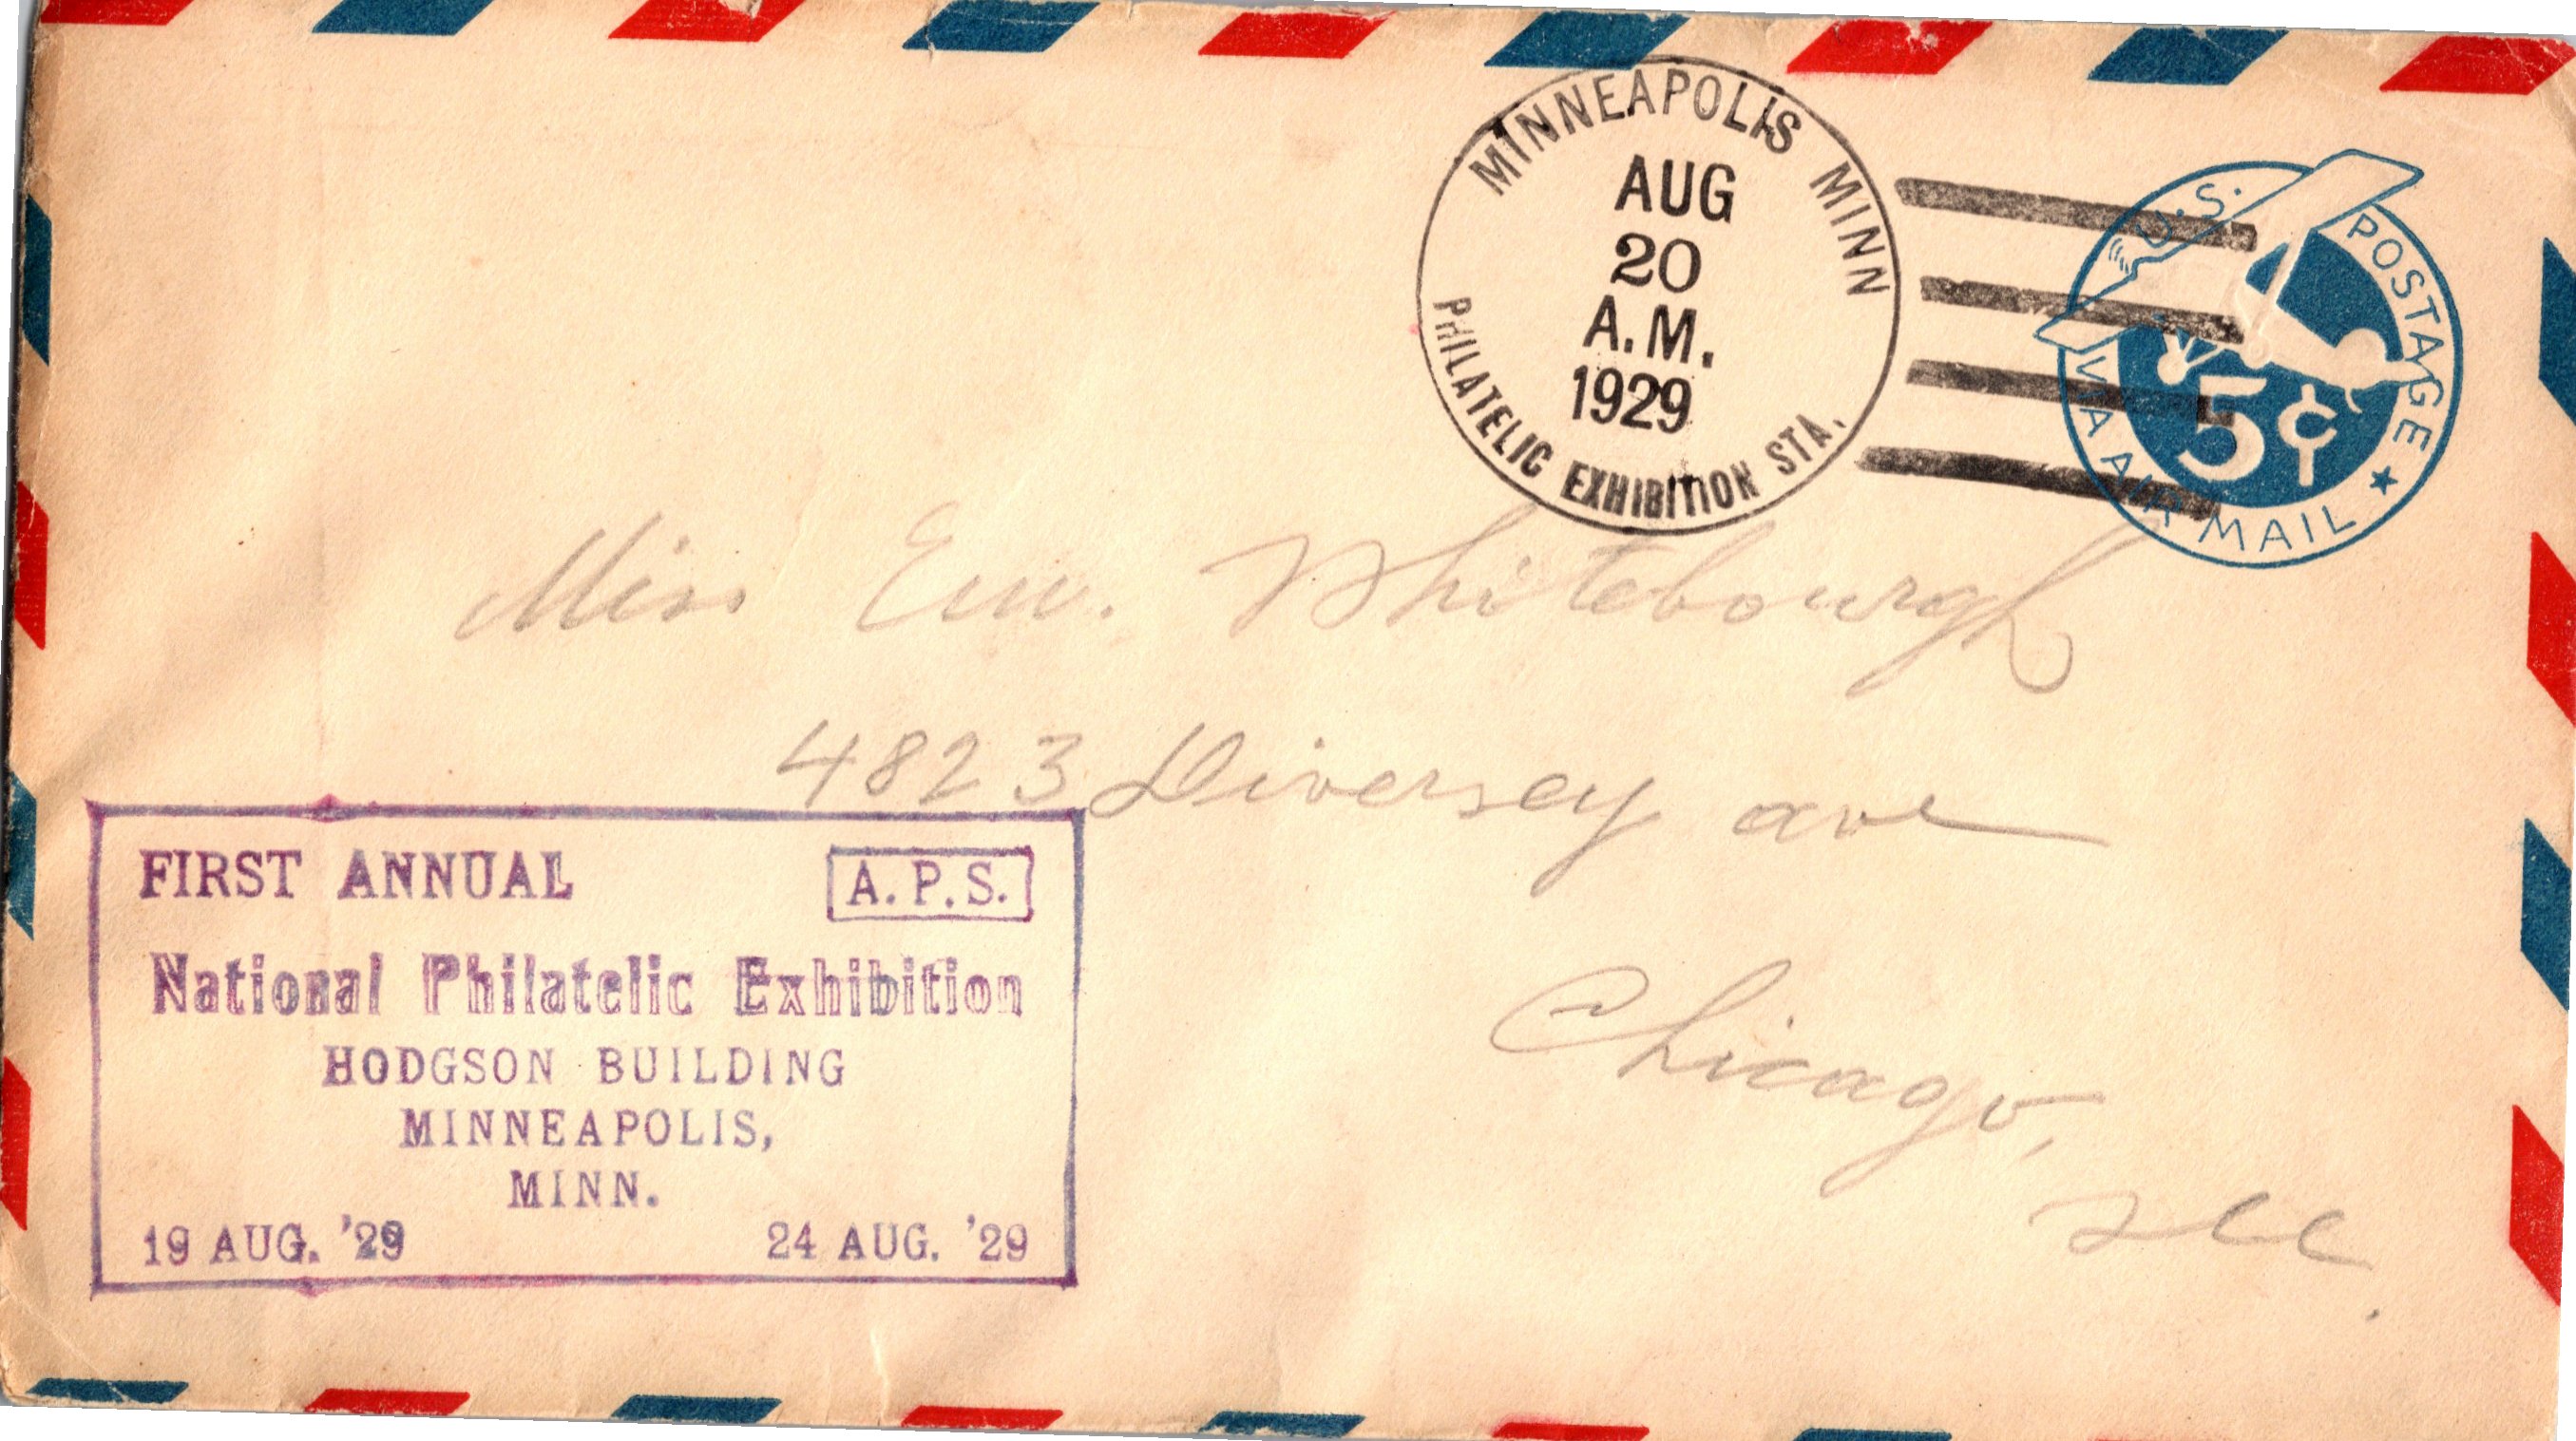 MINNEAPOLIS MINN
AUG
20
A.M.
1929
PHILATELIC EXHIBITION STA.
U.S. POSTAGE
5¢
VIA AIR MAIL
Miss Em. Whitebourgh
4823 Diversey ave
Chicago,
Ill.
FIRST ANNUAL A.P.S.
National Philatelic Exhibition
HODGSON BUILDING
MINNEAPOLIS,
MINN.
19 AUG. '29 24 AUG. '29